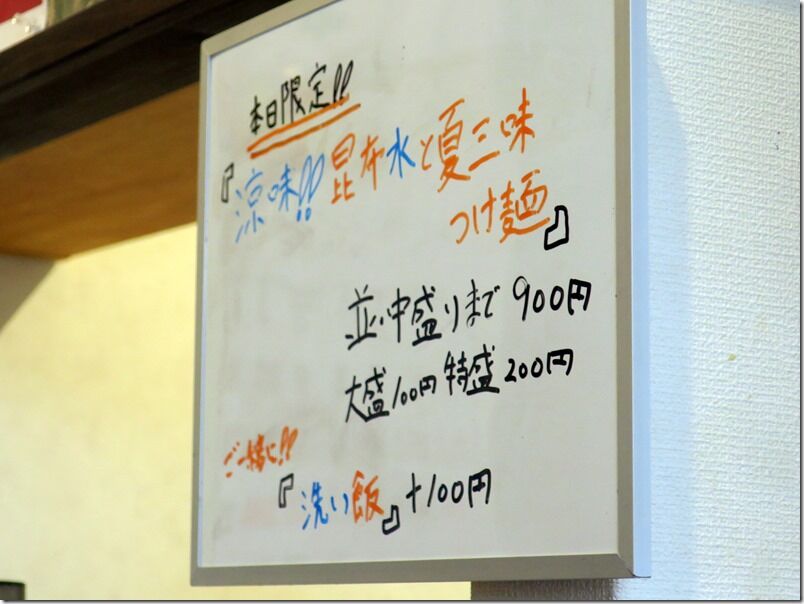 本日限定!!
『涼味!!昆布水と夏三味
つけ麺』
並・中盛りまで 900円
大盛100円 特盛200円
ご一緒に!!
『洗い飯』+100円